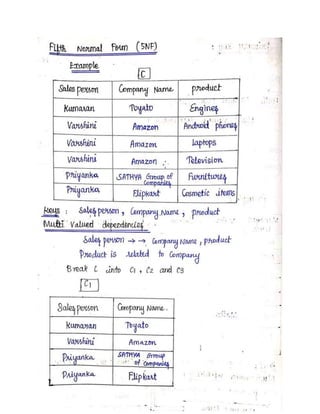 Fifth Normal Form (5NF)
Example
C
Sales person Company Name product
Kumaran Toyato Engines
Varshini Amazon Android phones
Varshini Amazon laptops
Varshini Amazon Television
Priyanka SATHYA Group of Companies Furnitures
Priyanka Flipkart Cosmetic items
Keys : Sales person, Company Name, product
Multi Valued dependencies
Sales person →→ Company Name, product
Product is related to Company
Break C into C1, C2 and C3
C1
Sales person Company Name
Kumaran Toyato
Varshini Amazon
Priyanka SATHYA Group of Companies
Priyanka Flipkart